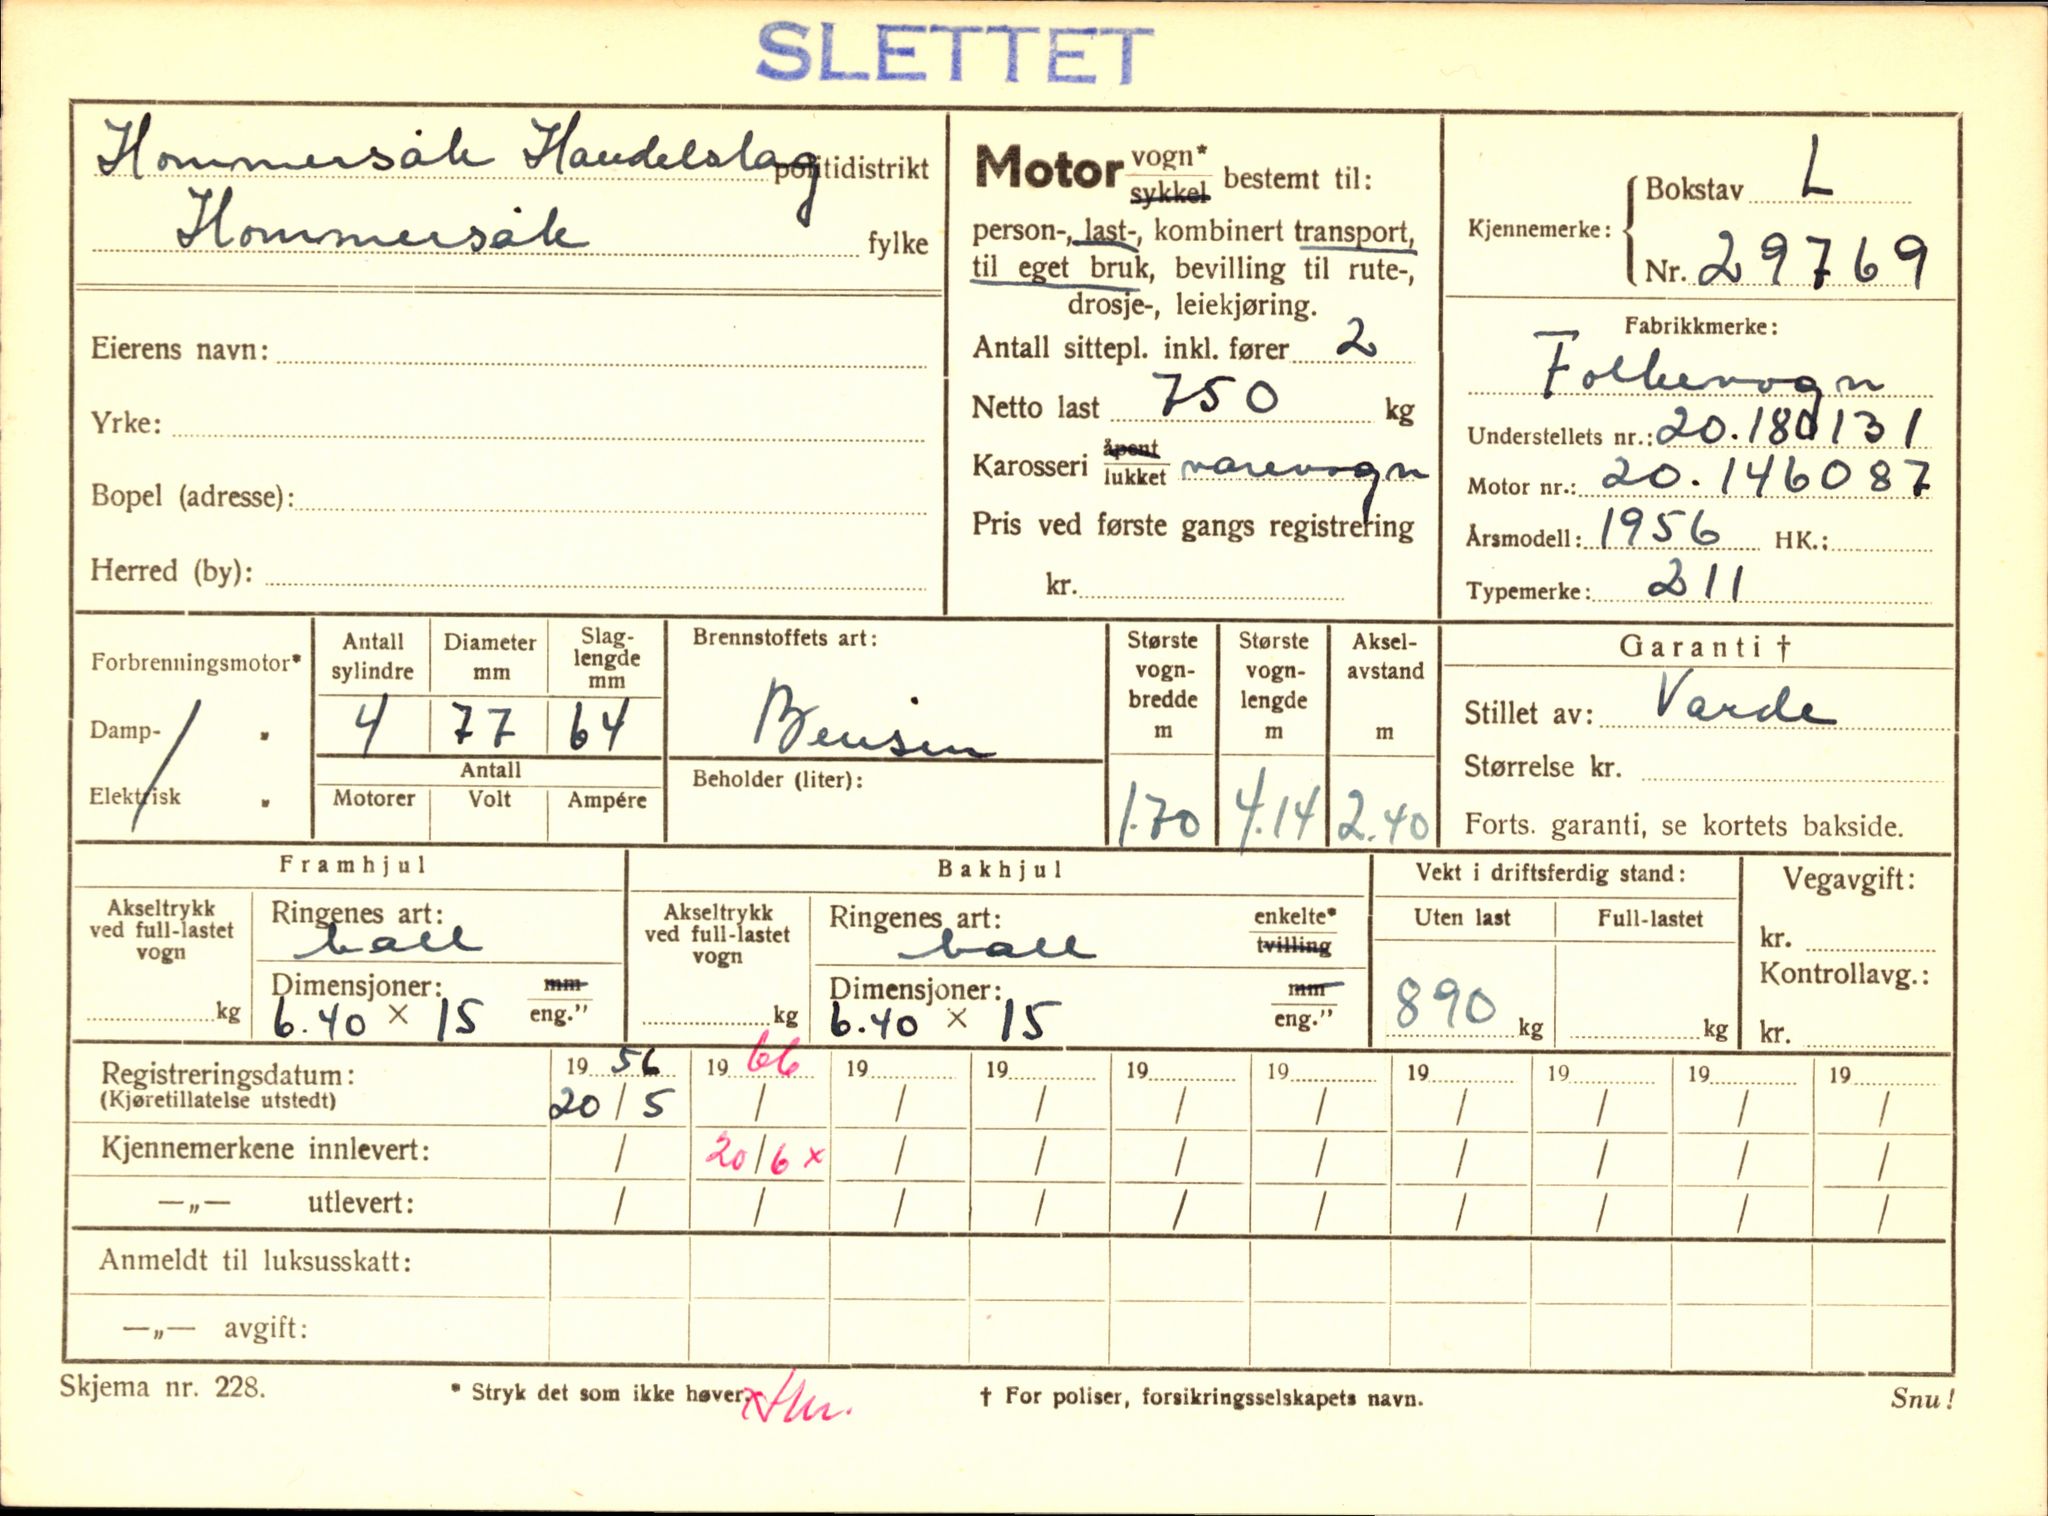 SLETTET
Hommersåk Handelslag politidistrikt
Hommersåk fylke
Eierens navn:
Yrke:
Bopel (adresse):
Herred (by):
Motor vogn* sykkel bestemt til:
person-, last-, kombinert transport,
til eget bruk, bevilling til rute-,
drosje-, leiekjøring.
Antall sittepl. inkl. fører 2
Netto last 750 kg
Karosseri åpent lukket varevogn
Pris ved første gangs registrering
kr.
Kjennemerke: Bokstav L
Nr. 29769
Fabrikkmerke:
Folkevogn
Understellets nr.: 20.180131
Motor nr.: 20.146087
Årsmodell: 1956 HK.:
Typemerke: 211
Forbrenningsmotor*
Damp- "
Elektrisk "
Antall sylindre
Diameter mm
Slag-
lengde
mm
4 77 64
Antall
Motorer Volt Ampére
Brennstoffets art:
Bensin
Beholder (liter):
Største
vogn-
bredde
m
1.70
Største
vogn-
lengde
m
4.14
Aksel-
avstand
m
2.40
Garanti †
Stillet av: Varde
Størrelse kr.
Forts. garanti, se kortets bakside.
Framhjul
Akseltrykk
ved full-lastet
vogn
kg
Ringenes art:
ball
Dimensjoner: mm
6.40 × 15 eng."
Bakhjul
Akseltrykk
ved full-lastet
vogn
kg
Ringenes art: enkelte*
ball tvilling
Dimensjoner: mm
6.40 × 15 eng."
Vekt i driftsferdig stand:
Uten last Full-lastet
890 kg kg
Vegavgift:
kr.
Kontrollavg.:
kr.
Registreringsdatum: 19 56 19 66 19 19 19 19 19 19 19 19
(Kjøretillatelse utstedt) 20/5 / / / / / / / / /
Kjennemerkene innlevert: / 20/6 x / / / / / / / /
—„— utlevert: / / / / / / / / / /
Anmeldt til luksusskatt:
—„— avgift:
Skjema nr. 228. * Stryk det som ikke høver. x † For poliser, forsikringsselskapets navn. Snu!